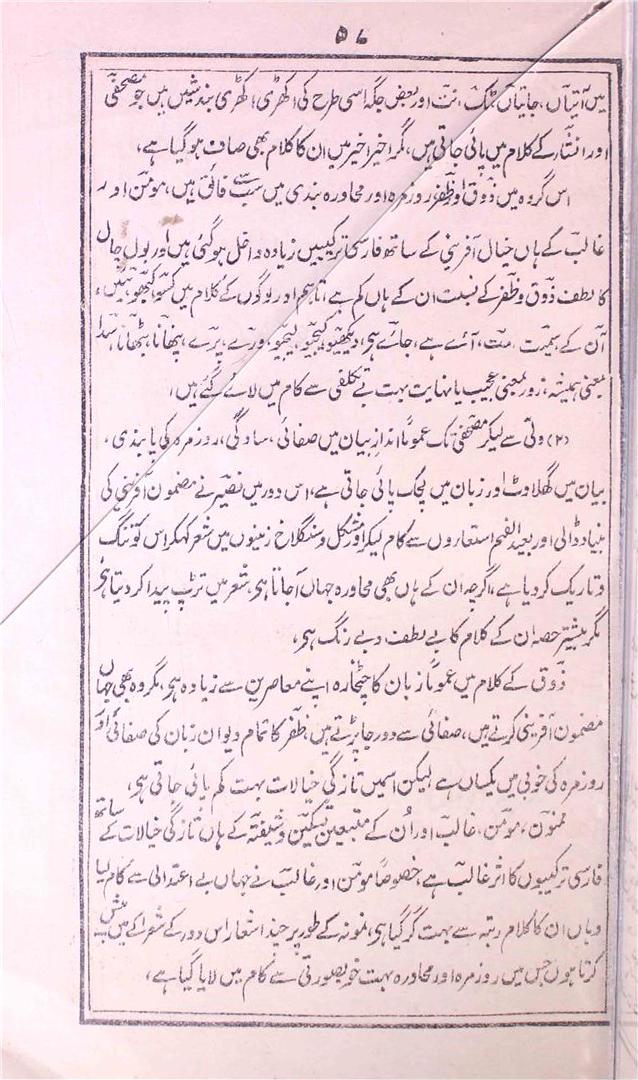 ۵۶
میں آتیاں، جاتیاں، ٹک، نت اور بعض جگہ اسی طرح کی اکھڑی اکھڑی بندشیں ہیں جو مصحفی
اور انشا کے کلام میں پائی جاتی ہیں، مگر اخیر اخیر میں ان کا کلام بھی صاف ہو گیا ہے،
اس گروہ میں ذوق اور ظفر روزمرہ اور محاورہ بندی میں سب سے فائق ہیں، مومن اور
غالب کے ہاں خیال آفرینی کے ساتھ فارسی ترکیبیں زیادہ داخل ہو گئی ہیں اور بول چال
کا لطف ذوق و ظفر کے نسبت ان کے ہاں کم ہے، تاہم اور لوگوں کے کلام میں کسو، کبھو، تئیں،
آن کے، سمیت، مت، آئے ہے، جائے ہے، دیکھیو، کیجیو، لیجیو، ورے، پرے، پنھانا، بٹھانا، سدا
بمعنی ہمیشہ، زور بمعنی عجیب یا نہایت بہت بے تکلفی سے کام میں لائے گئے ہیں،
(۲) ولی سے لیکر مصحفی تک عموماً انداز بیان میں صفائی، سادگی، روزمرہ کی پابندی،
بیان میں گھلاوٹ اور زبان میں لچک پائی جاتی ہے، اس دور میں نصیر نے مضمون آفرینی کی
بنیاد ڈالی اور بعید الفہم استعاروں سے کام لیکر اور مشکل و سنگلاخ زمینوں میں شعر کہکر اس کو تنگ
و تاریک کر دیا ہے، اگرچہ ان کے ہاں بھی محاورہ جہاں آجاتا ہی، شعر میں تڑپ پیدا کر دیتا ہی
مگر بیشتر حصہ ان کے کلام کا بے لطف و بے رنگ ہی،
ذوق کے کلام میں عموماً زبان کا چٹخارہ اپنے معاصرین سے زیادہ ہی، مگر وہ بھی جہاں
مضمون آفرینی کرتے ہیں، صفائی سے دور جا پڑتے ہیں، ظفر کا تمام دیوان زبان کی صفائی اور
روزمرہ کی خوبی میں یکساں ہے لیکن اسمیں تازگی خیالات بہت کم پائی جاتی ہی،
ممنون، مومن، غالب اور اُن کے متبعین تسکین و شیفتہ کے ہاں تازگی خیالات کے ساتھ
فارسی ترکیبوں کا اثر غالب ہے، خصوصاً مومن اور غالب نے جہاں بے اعتدالی سے کام لیا
وہاں ان کا کلام رتبہ سے بہت گر گیا ہی، نمونہ کے طور پر چند اشعار اس دور کے شعرا کے میں پیش
کرتا ہوں جس میں روزمرہ اور محاورہ بہت خوبصورتی سے کام میں لایا گیا ہے،